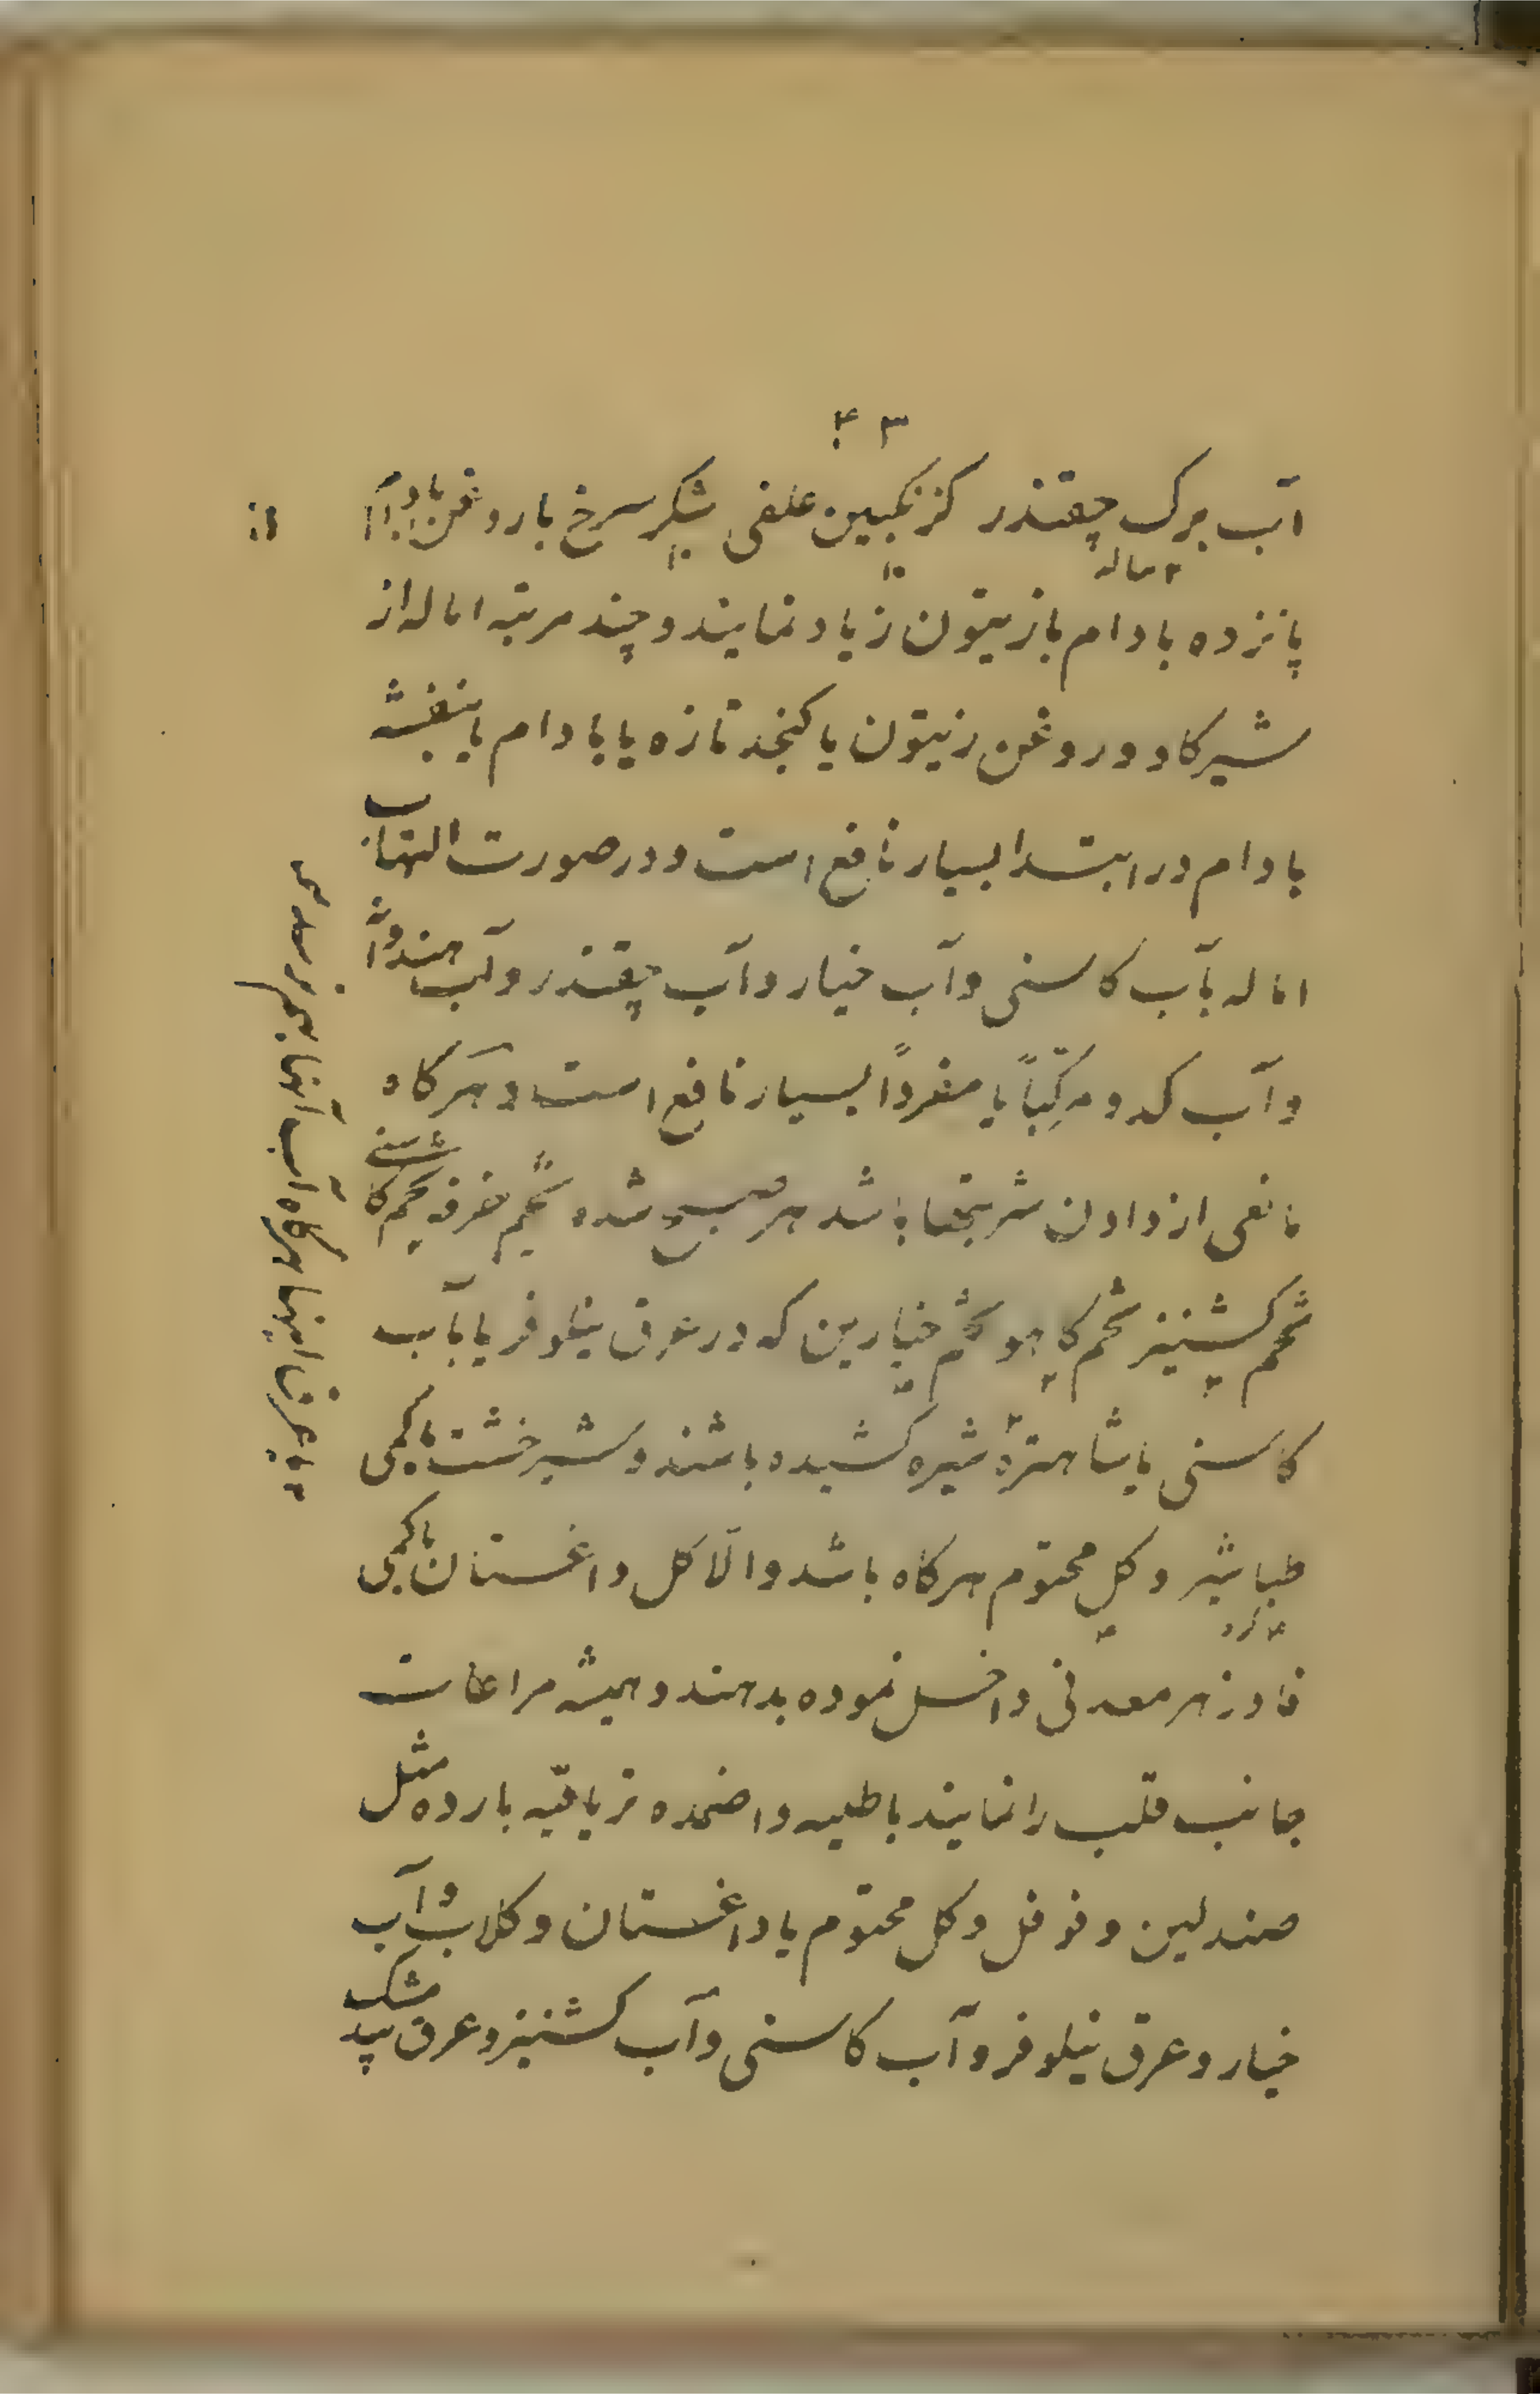 ۴۳
آب برک چقندر کزنکبین علفی شکر سرخ با روغن بادام
پانزده بادام با زیتون زیاد نمایند و چند مرتبه اماله از
شیر کاو و روغن زیتون یا کنجد تازه یا بادام یا بنفشه
بادام در ابتدا بسیار نافع است و در صورت التهاب
اماله بآب کاسنی و آب خیار و آب چقندر و آب هندوانه
و آب کدو مرکّباً یا مفرداً بسیار نافع است و هرکاه
مانعی از دادن شربتها باشد هر صبح شده تخم خرفه تخم کاسنی
تخم کشنیز تخم کاهو تخم خیارین که در عرق نیلوفر یا بآب
کاسنی یا شاهتره شیره کشیده باشند و شیرخشت با کمی
طباشیر و کل مختوم هرکاه باشد والّا کل داغستان با کمی
فادزهر معدنی داخل نموده بدهند و همیشه مراعات
جانب قلب را نمایند باطلیه و اضمده تریاقیّه بارده مثل
صندلین و فوفل و کل مختوم یا داغستان و کلاب و آب
خیار و عرق نیلوفر و آب کاسنی و آب کشنیز و عرق بید مشک